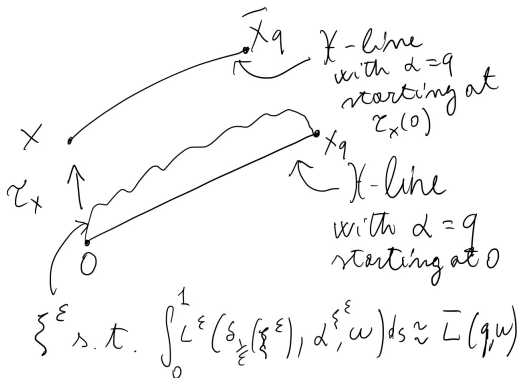 X̄q
𝒳-line
with α = q
starting at
τₓ(0)
X
τₓ
0
Xq
𝒳-line
with α = q
starting at 0
ξ^ε s.t. ∫₀¹ L^ε(δ_{1/ε}(ξ^ε), α^{ξ^ε}, ω)ds ≈ L̄(q,ω)